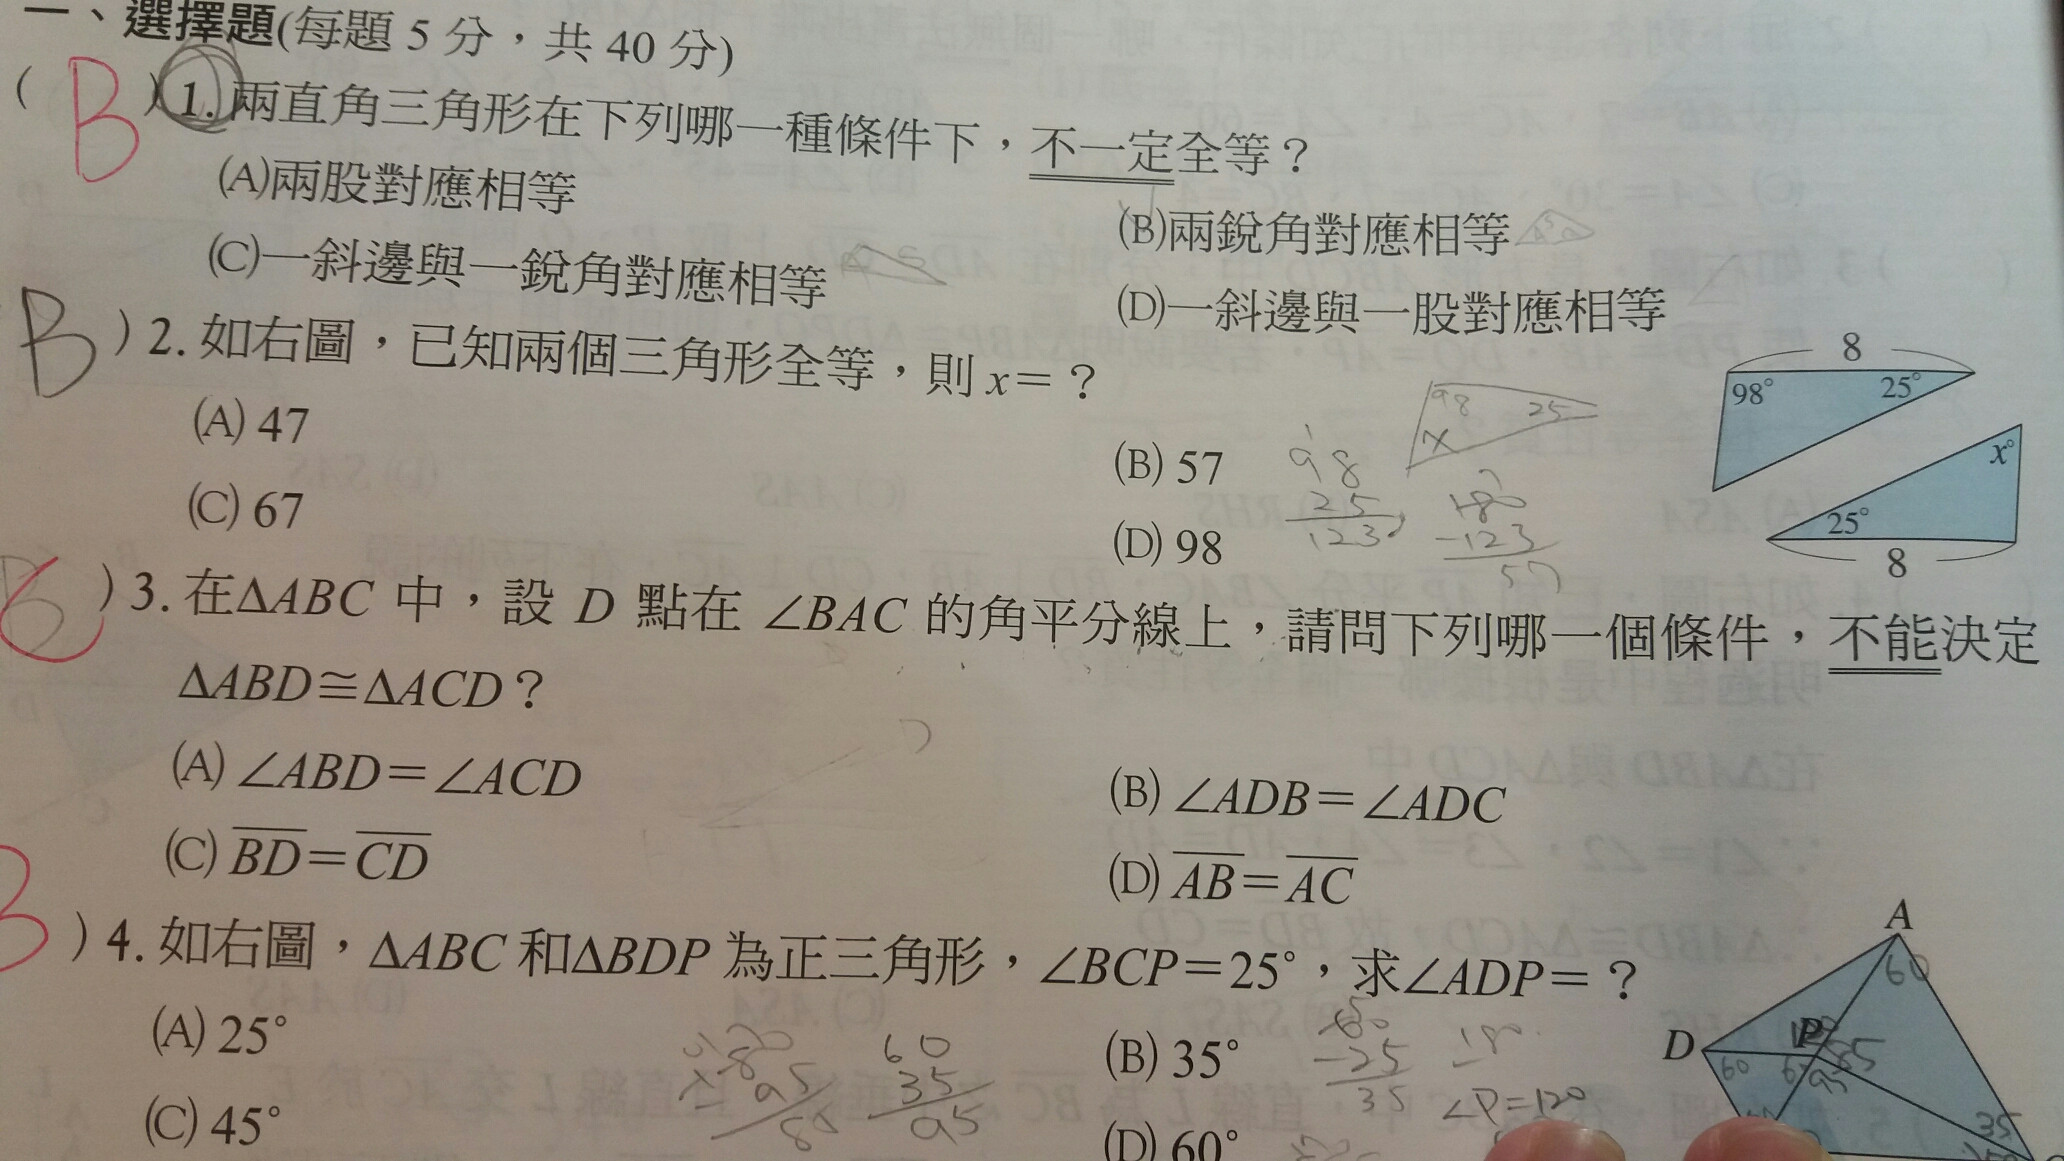 一、選擇題(每題 5 分，共 40 分)
( B ) 1. 兩直角三角形在下列哪一種條件下，不一定全等？
(A)兩股對應相等
(B)兩銳角對應相等
(C)一斜邊與一銳角對應相等
(D)一斜邊與一股對應相等
B ) 2. 如右圖，已知兩個三角形全等，則 x＝？
(A) 47
(B) 57
(C) 67
(D) 98
98
25
123
180
-123
57
98 25
x
8
98° 25°
x°
25°
8
C ) 3. 在ΔABC 中，設 D 點在 ∠BAC 的角平分線上，請問下列哪一個條件，不能決定
ΔABD≅ΔACD？
(A) ∠ABD＝∠ACD
(B) ∠ADB＝∠ADC
(C) BD＝CD
(D) AB＝AC
B ) 4. 如右圖，ΔABC 和ΔBDP 為正三角形，∠BCP＝25°，求∠ADP＝？
(A) 25°
(B) 35°
(C) 45°
(D) 60°
60
35
95
60
-25
35
180
∠P=120
A
60
D
P
60
95
35